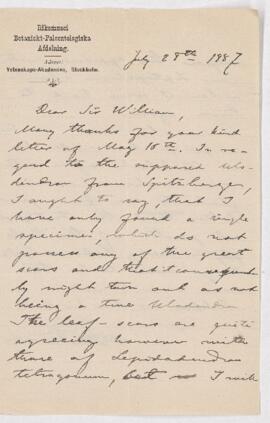 Riksmusei
Botaniskt-Paleontologiska
Afdelning.
Adress:
Vetenskaps-Akademien, Stockholm.
July 28th 1887
Dear Sir William,
Many thanks for your kind
letter of May 18th. In re-
gard to the supposed Ulo-
dendron from Spitzbergen,
I ought to say, that I
have only found a single
specimen, which do not
possess any of the great
scars and that it consequent-
ly might turn out as not
being a true Ulodendron
The leaf-scars are quite
agreeing however with
those of Lepidodendron
tetragonum, but I wish